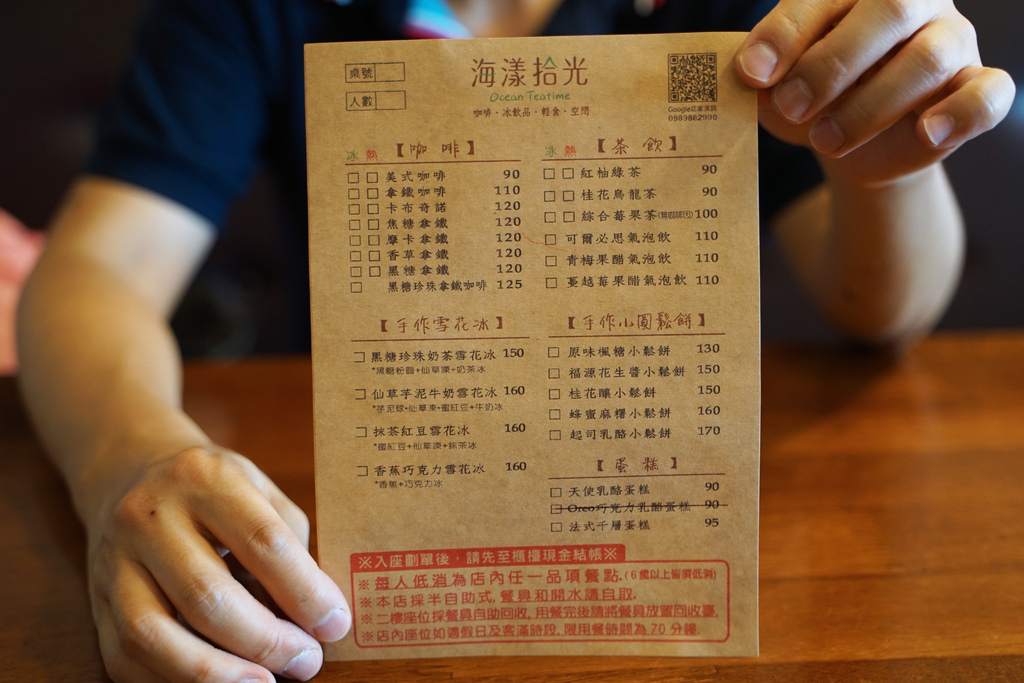 桌號
人數
海漾拾光
Ocean Teatime
咖啡·冰飲品·輕食·空間
Google店家資訊
0989862990
冰 熱 【咖啡】
美式咖啡 90
拿鐵咖啡 110
卡布奇諾 120
焦糖拿鐵 120
摩卡拿鐵 120
香草拿鐵 120
黑糖拿鐵 120
黑糖珍珠拿鐵咖啡 125
冰 熱 【茶飲】
紅柚綠茶 90
桂花烏龍茶 90
綜合莓果茶(無咖啡因) 100
可爾必思氣泡飲 110
青梅果醋氣泡飲 110
蔓越莓果醋氣泡飲 110
【手作雪花冰】
黑糖珍珠奶茶雪花冰 150
*黑糖粉圓+仙草凍+奶茶冰
仙草芋泥牛奶雪花冰 160
*芋泥球+仙草凍+蜜紅豆+牛奶冰
抹茶紅豆雪花冰 160
*蜜紅豆+仙草凍+抹茶冰
香蕉巧克力雪花冰 160
*香蕉+巧克力冰
【手作小圓鬆餅】
原味楓糖小鬆餅 130
福源花生醬小鬆餅 150
桂花釀小鬆餅 150
蜂蜜麻糬小鬆餅 160
起司乳酪小鬆餅 170
【蛋糕】
天使乳酪蛋糕 90
Oreo巧克力乳酪蛋糕 90
法式千層蛋糕 95
※入座劃單後，請先至櫃檯現金結帳※
※每人低消為店內任一品項餐點.(6歲以上皆須低消)
※本店採半自助式,餐具和開水請自取.
※二樓座位採餐具自助回收,用餐完後請將餐具放置回收臺.
※店內座位如遇假日及客滿時段,限用餐時間為70分鐘.